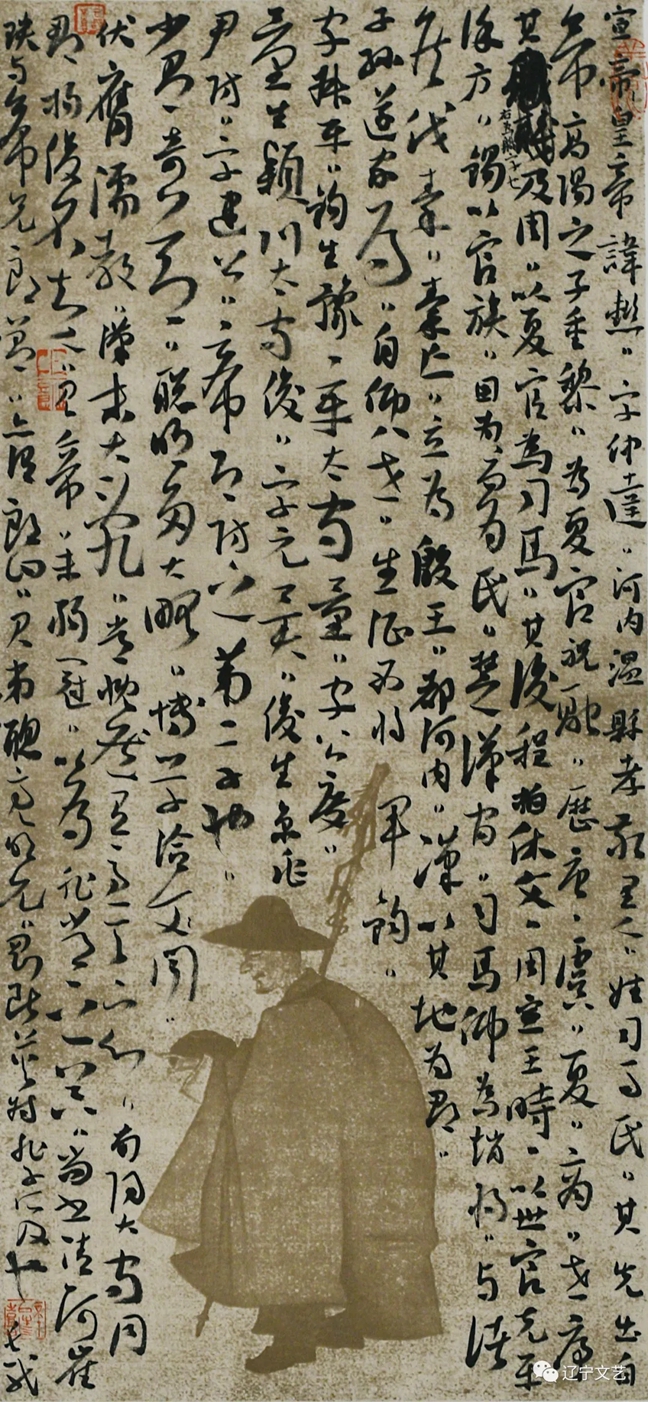 宣帝皇帝諱懿字仲達河内溫縣孝敬里人姓司馬氏其先出自
帝高陽之子重黎為夏官祝融歷唐虞夏商世序
其職及周以夏官為司馬其後程栢休父周宣王時以世官克平
徐方錫以官族因而為氏楚漢間司馬卬為趙將與諸
侯伐秦秦亡立為殷王都河内漢以其地為郡
子孫遂家焉自卬八世生征西將軍鈞
字叔平鈞生豫章太守量字公度
量生潁川太守儁字元異儁生京兆
尹防字建公帝即防之第二子也
少有奇節聰明多大略博學洽聞
伏膺儒教漢末大亂常慨然有憂天下心南陽太守同
郡楊俊名知人見帝未弱冠以為非常之器尚書清河崔
琰與帝兄朗善亦謂朗曰君弟聰亮明允剛斷英特非子所及也
辽宁文艺